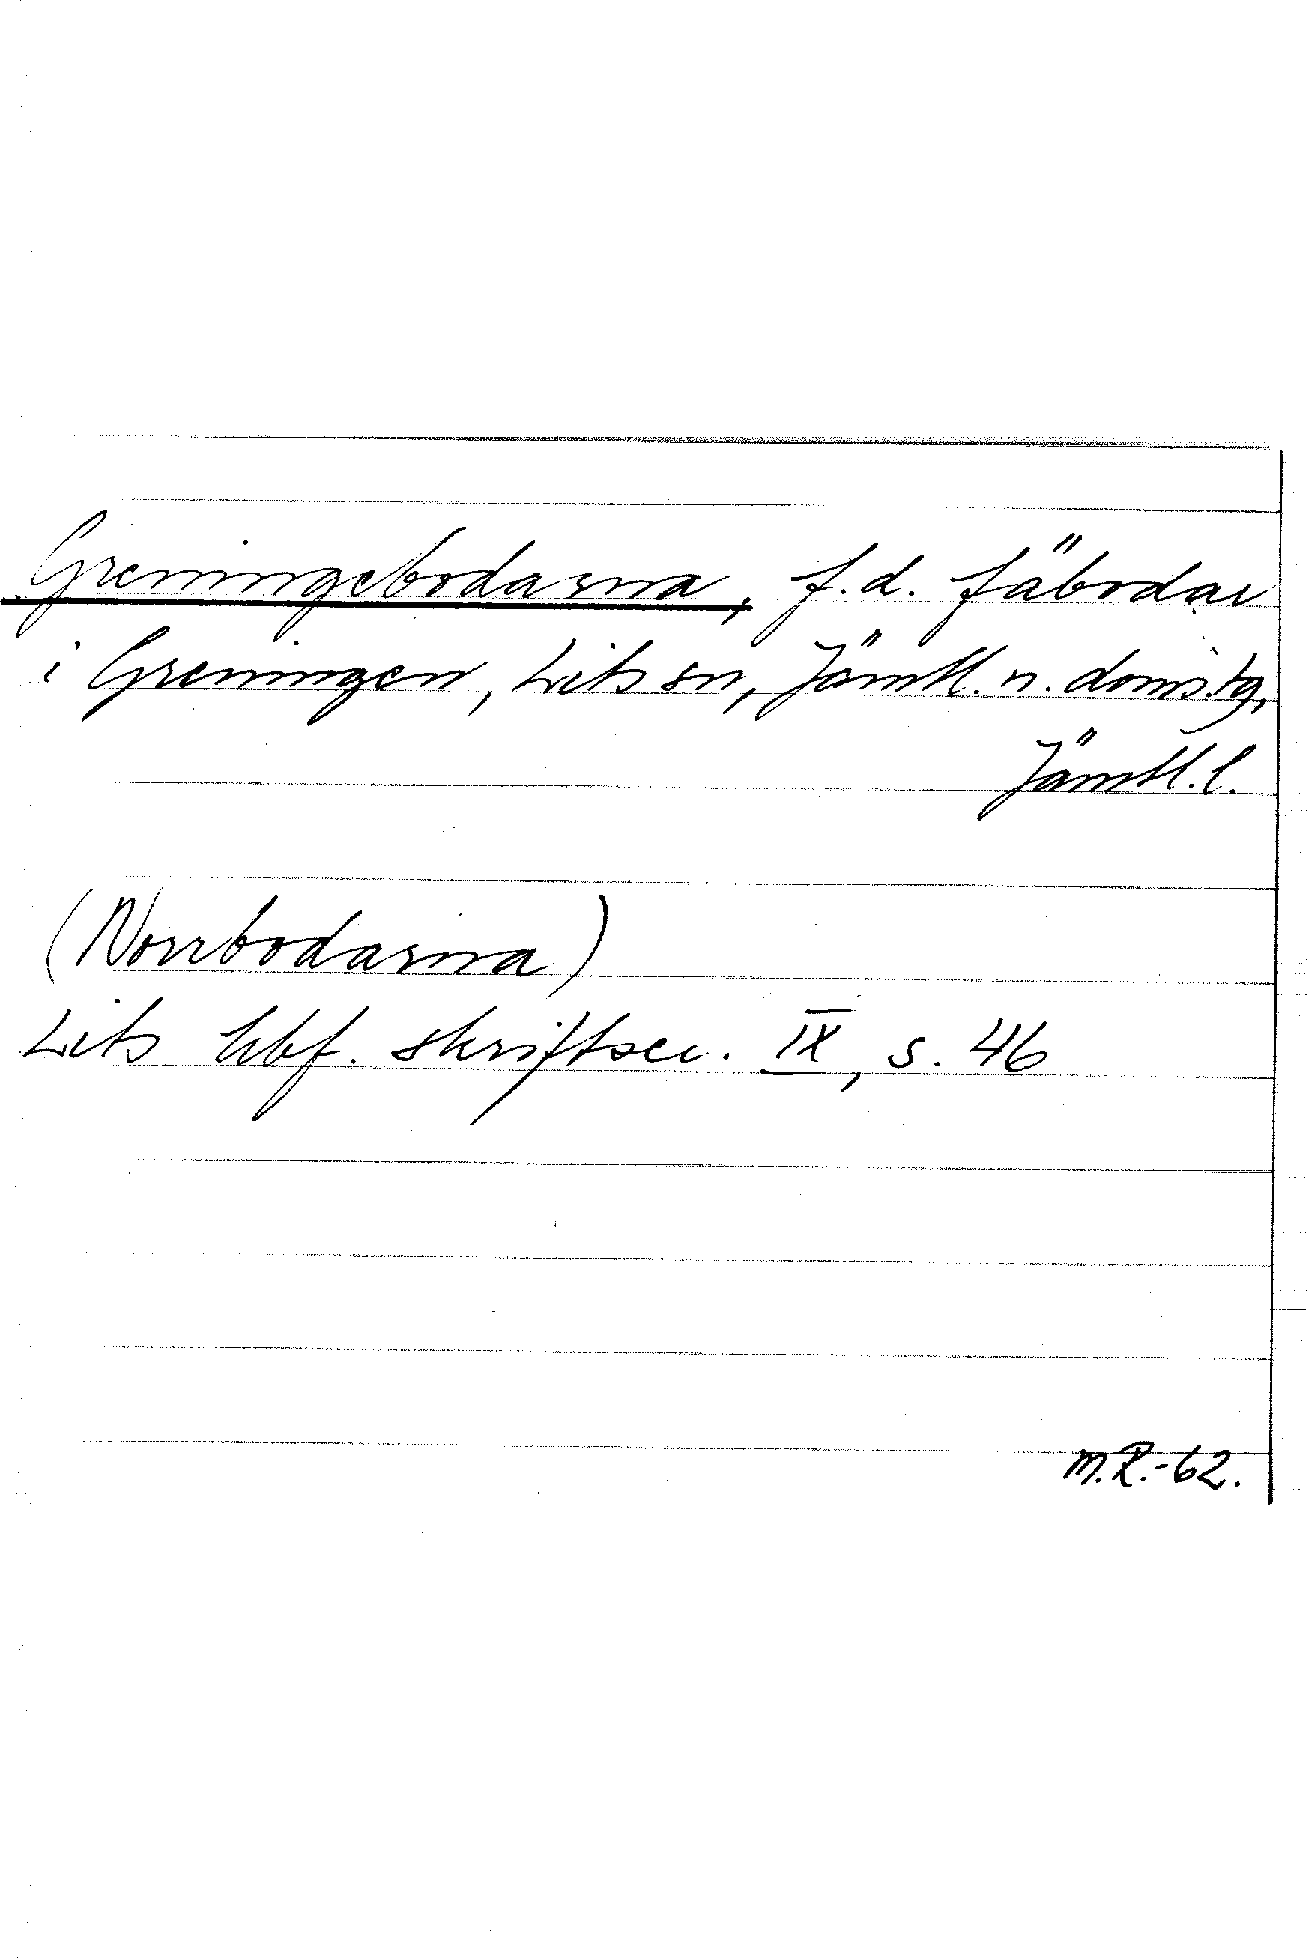 Greningebodarna, f.d. fäbodar
i Greningen, Lits sn, Jämtl. n. doms.tg,
Jämtl. l.
(Norrbodarna)
Lits hbf. skriftser. IX, s. 46
M.R.-62.